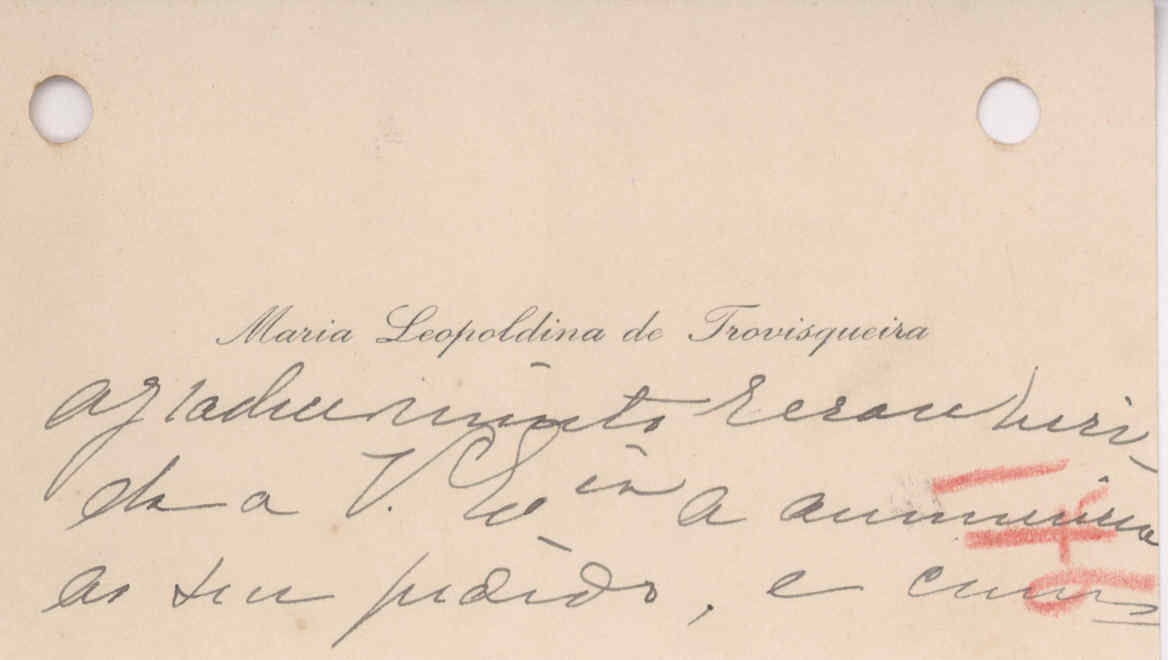 Maria Leopoldina de Trovisqueira
agradece muito reconheci-
da a V. Exª a
ao seu pedido, e